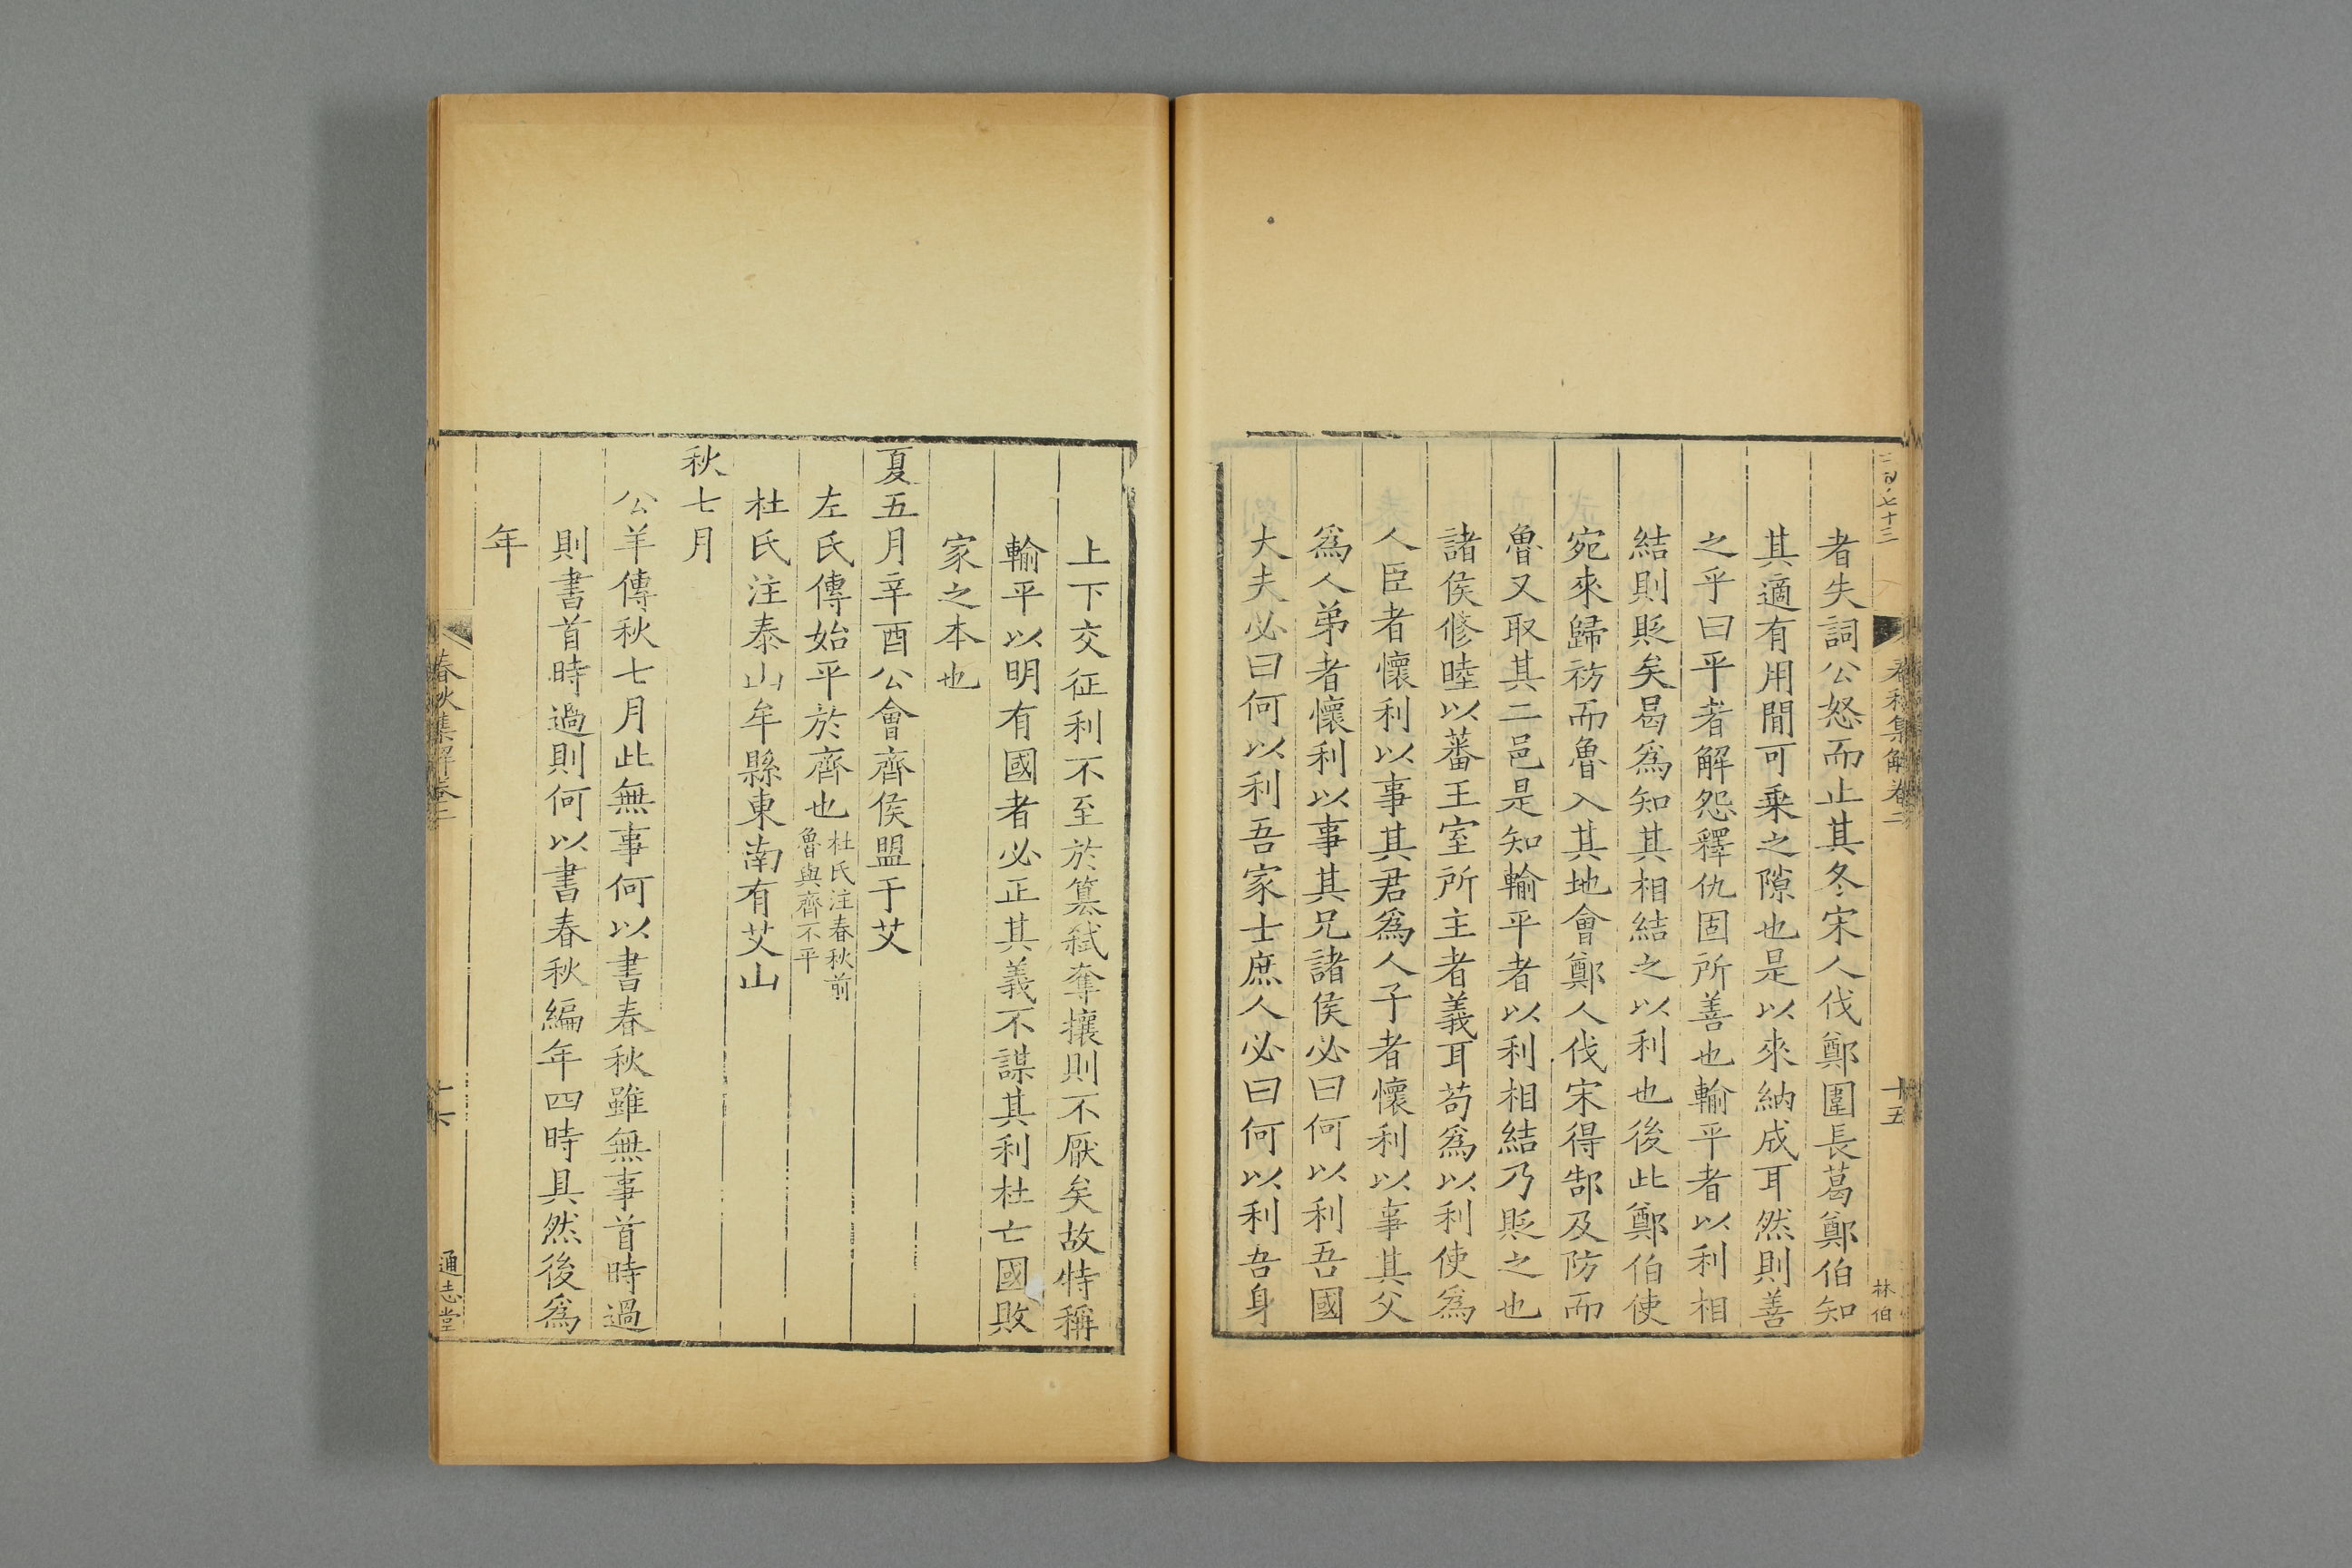 春秋集解卷二
十五
林伯
者失詞公怒而止其冬宋人伐鄭圍長葛鄭伯知
其適有用間可乗之隙也是以來納成耳然則善
之乎曰平者解怨釋仇固所善也輸平者以利相
結則貶矣曷爲知其相結之以利也後此鄭伯使
宛來歸祊而魯入其地會鄭人伐宋得郜及防而
魯又取其二邑是知輸平者以利相結乃貶之也
諸侯修睦以蕃王室所主者義耳苟爲以利使爲
人臣者懷利以事其君爲人子者懷利以事其父
爲人弟者懷利以事其兄諸侯必曰何以利吾國
大夫必曰何以利吾家士庶人必曰何以利吾身
上下交征利不至於簒弒奪攘則不厭矣故特稱
輸平以明有國者必正其義不謀其利杜亡國敗
家之本也
夏五月辛酉公會齊侯盟于艾
左氏傳始平於齊也杜氏注春秋前魯與齊不平
杜氏注泰山牟縣東南有艾山
秋七月
公羊傳秋七月此無事何以書春秋雖無事首時過
則書首時過則何以書春秋編年四時具然後爲
年
春秋集解卷二
十六
通志堂